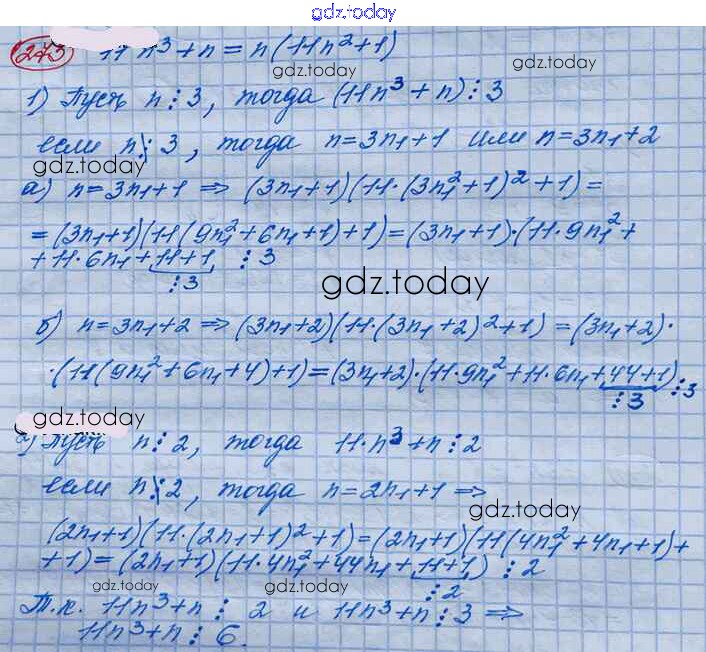 gdz.today
273 11n³+n = n(11n²+1)
gdz.today gdz.today
1) Пусть n⋮3, тогда (11n³+n)⋮3
если n⋮̸3, тогда n=3n₁+1 или n=3n₁+2
gdz.today gdz.today
а) n=3n₁+1 ⇒ (3n₁+1)(11·(3n₁²+1)²+1)=
=(3n₁+1)(11(9n₁²+6n₁+1)+1)=(3n₁+1)·(11·9n₁²+
+11·6n₁+11+1 ⋮3
⋮3
gdz.today
б) n=3n₁+2 ⇒ (3n₁+2)(11·(3n₁+2)²+1)=(3n₁+2)·
·(11(9n₁²+6n₁+4)+1)=(3n₁+2)·(11·9n₁²+11·6n₁+44+1)⋮3
⋮3
gdz.today
2) Пусть n⋮2, тогда 11·n³+n⋮2
gdz.today
если n⋮̸2, тогда n=2n₁+1 ⇒
gdz.today
(2n₁+1)(11·(2n₁+1)²+1)=(2n₁+1)(11(4n₁²+4n₁+1)+
+1)=(2n₁+1)(11·4n₁²+44n₁+11+1) ⋮2
⋮2
gdz.today gdz.today
Т.к. 11n³+n⋮2 и 11n³+n⋮3 ⇒
11n³+n⋮6.